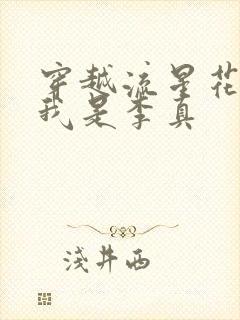 穿越流星花
我是李真
浅井西